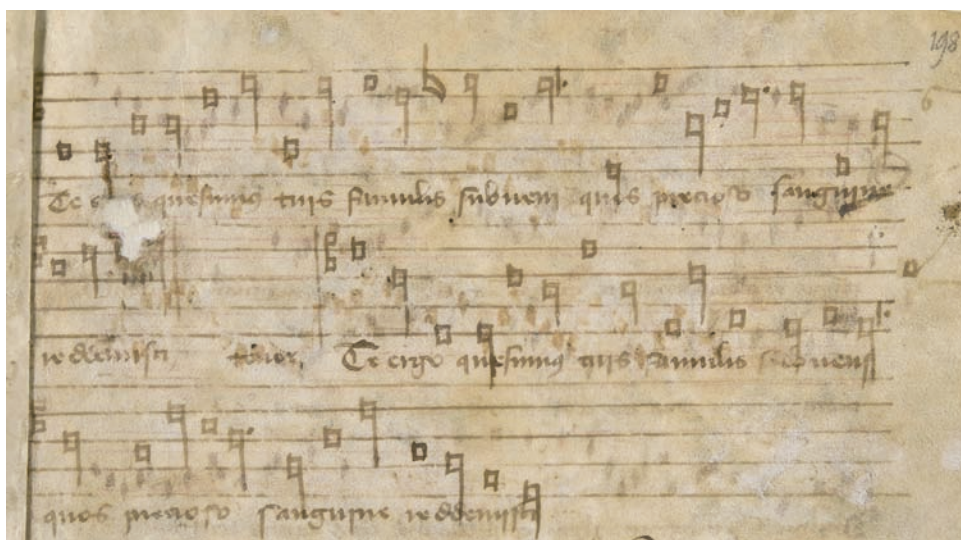 198
Te e o quesumus tuis famulis subveni quos precioso sanguine
redemisti tenor Te ergo quesumus tuis famulis subveni
quos precioso sanguine redemisti